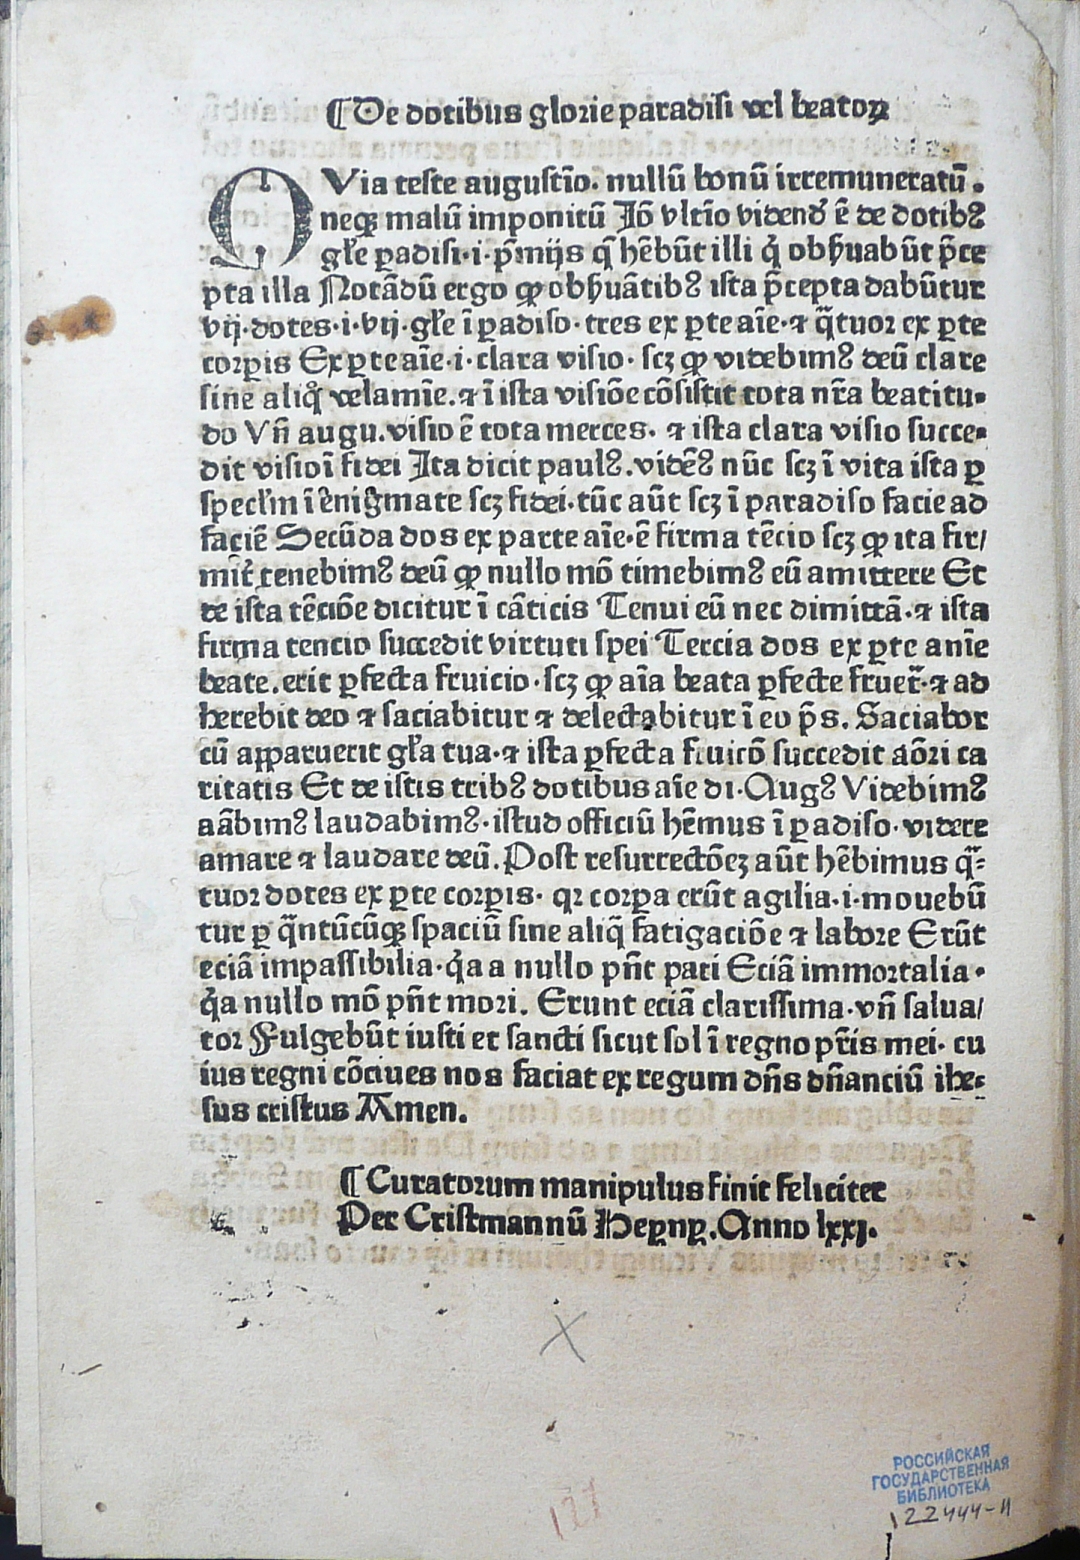 ¶ De dotibus glorie paradisi vel beatoꝝ
QVia teste augustīo. nullū bonū irremuneratū.
neqꝫ malū imponitū Iō vltīo vidend' ē de dotibꝰ
gl'e ꝑadisi·i·p̄mijs q̄ hēbūt illi q' obẜuabūt p̄ce
pta illa Notādū ergo ꝙ obẜuātibꝰ ista p̄cepta dabūtur
vij·dotes·i·vij·gl'e ī ꝑadiso·tres ex ꝑte aīe·⁊ q̄tuor ex ꝑte
corꝑis Ex ꝑte aīe·i·clara visio· scꝫ ꝙ videbimꝰ deū clare
sine aliq° velamīe.⁊ ī ista visiōe cōsistit tota nr̄a beatitu-
do Vn̄ augu.visio ē tota merces. ⁊ ista clara visio succe-
dit visioī fidei Ita dicit paulꝰ.vidēꝰ nūc scꝫ ī vita ista ꝑ
specl'm ī enigmate scꝫ fidei·tūc aūt scꝫ ī paradiso facie ad
faciē Secūda dos ex parte aīe·ē firma tēcio scꝫ ꝙ ita fir/
mit' tenebimꝰ deū ꝙ nullo mō timebimꝰ eū amittere Et
de ista tēciōe dicitur ī cāticis Tenui eū nec dimittā·⁊ ista
firma tencio succedit virtuti spei Tercia dos ex ꝑte anīe
beate.erit ꝑfecta fruicio·scꝫ ꝙ aīa beata ꝑfecte fruet̄·⁊ ad
herebit deo ⁊ saciabitur ⁊ delectabitur ī eo p̄s. Saciabor
cū apparuerit gl'a tua·⁊ ista ꝑfecta fruicō succedit aōri ca
ritatis Et de istis tribꝰ dotibus aīe di·Augꝰ Videbimꝰ
aābimꝰ laudabimꝰ·istud officiū hēmus ī ꝑadiso·videre
amare ⁊ laudare deū.Post resurrectōeꝫ aūt hēbimus q̄-
tuor dotes ex ꝑte corꝑis· qr corꝑa erūt agilia·i·mouebū
tur ꝑ q̄ntūcūqꝫ spaciū sine aliq̄ fatigaciōe ⁊ labore Erūt
eciā impassibilia·q'a a nullo pn̄t pati Eciā immortalia·
q'a nullo mō pn̄t mori. Erunt eciā clarissima·vn̄ salua/
tor Fulgebūt iusti et sancti sicut sol ī regno pr̄is mei· cu
ius regni cōciues nos faciat ex regum dn̄s dn̄anciū ihe-
sus cristus Amen.
¶ Curatorum manipulus finit feliciter
Per Cristmannū Heꝑnꝑ.Anno lxxj.
X
177
РОССИЙСКАЯ
ГОСУДАРСТВЕННАЯ
БИБЛИОТЕКА
122444-II